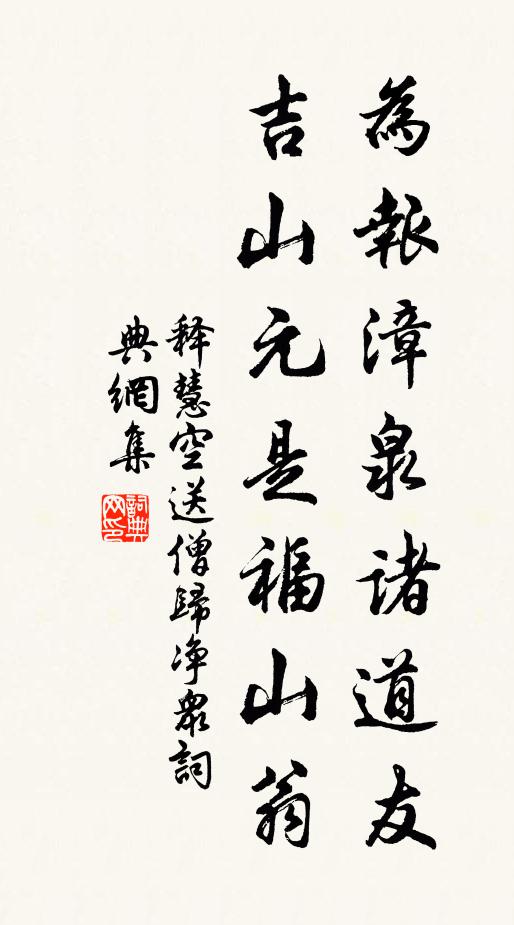 為報漳泉諸道友
吉山元是福山翁
释慧空送僧歸净眾詞
典網集
詞典網印